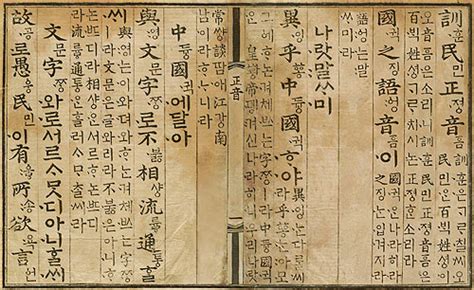 訓훈民민正졍音음
訓훈은 ᄀᆞᄅᆞ칠씨오
民민ᄋᆞᆫ 百ᄇᆡᆨ姓셩이오
音음은 소리니 訓훈民민正졍音음은
百ᄇᆡᆨ姓셩 ᄀᆞᄅᆞ치시논 正졍ᄒᆞᆫ 소리라
國귁之징語ᅌᅥᆼ音음이
國귁ᄋᆞᆫ 나라히라
之징ᄂᆞᆫ 입겨지라
語ᅌᅥᆼ는 말ᄊᆞ미라
나랏말ᄊᆞ미
異잉乎ᅘᅩᆼ中듕國귁ᄒᆞ야
異잉ᄂᆞᆫ 다ᄅᆞᆯ씨라
乎ᅘᅩᆼᄂᆞᆫ 아모
ᄒᆞ논 겨체 ᄡᅳ는 字ᄍᆞᆼㅣ라 中듕國귁
ᄋᆞᆫ 皇황帝뎽 겨신 나라히니 우리나랏
正音
常썅談땀애 江강南
남이라 ᄒᆞᄂᆞ니라
中듕國귁에 달아
與영文문字ᄍᆞᆼ로 不붏相샹流류通통ᄒᆞᆯ
ᄊᆡ
與영는 이와 뎌와 ᄒᆞ는 겨체 ᄡᅳ는 字ᄍᆞᆼㅣ
라 文문ᄋᆞᆫ 글와리라 不붏은 아니 ᄒᆞ
논 ᄠᅳ디라 相샹ᄋᆞᆫ 서르 ᄒᆞ논 ᄠᅳ디
라 流류通통ᄋᆞᆫ 흘러 ᄉᆞᄆᆞᄎᆞᆯ씨라
文문字ᄍᆞᆼ와로 서르 ᄉᆞᄆᆞᆺ디 아니ᄒᆞᆯᄊᆡ
故공로 愚웅民민이 有ᅌᅮᇢ所송欲욕言언